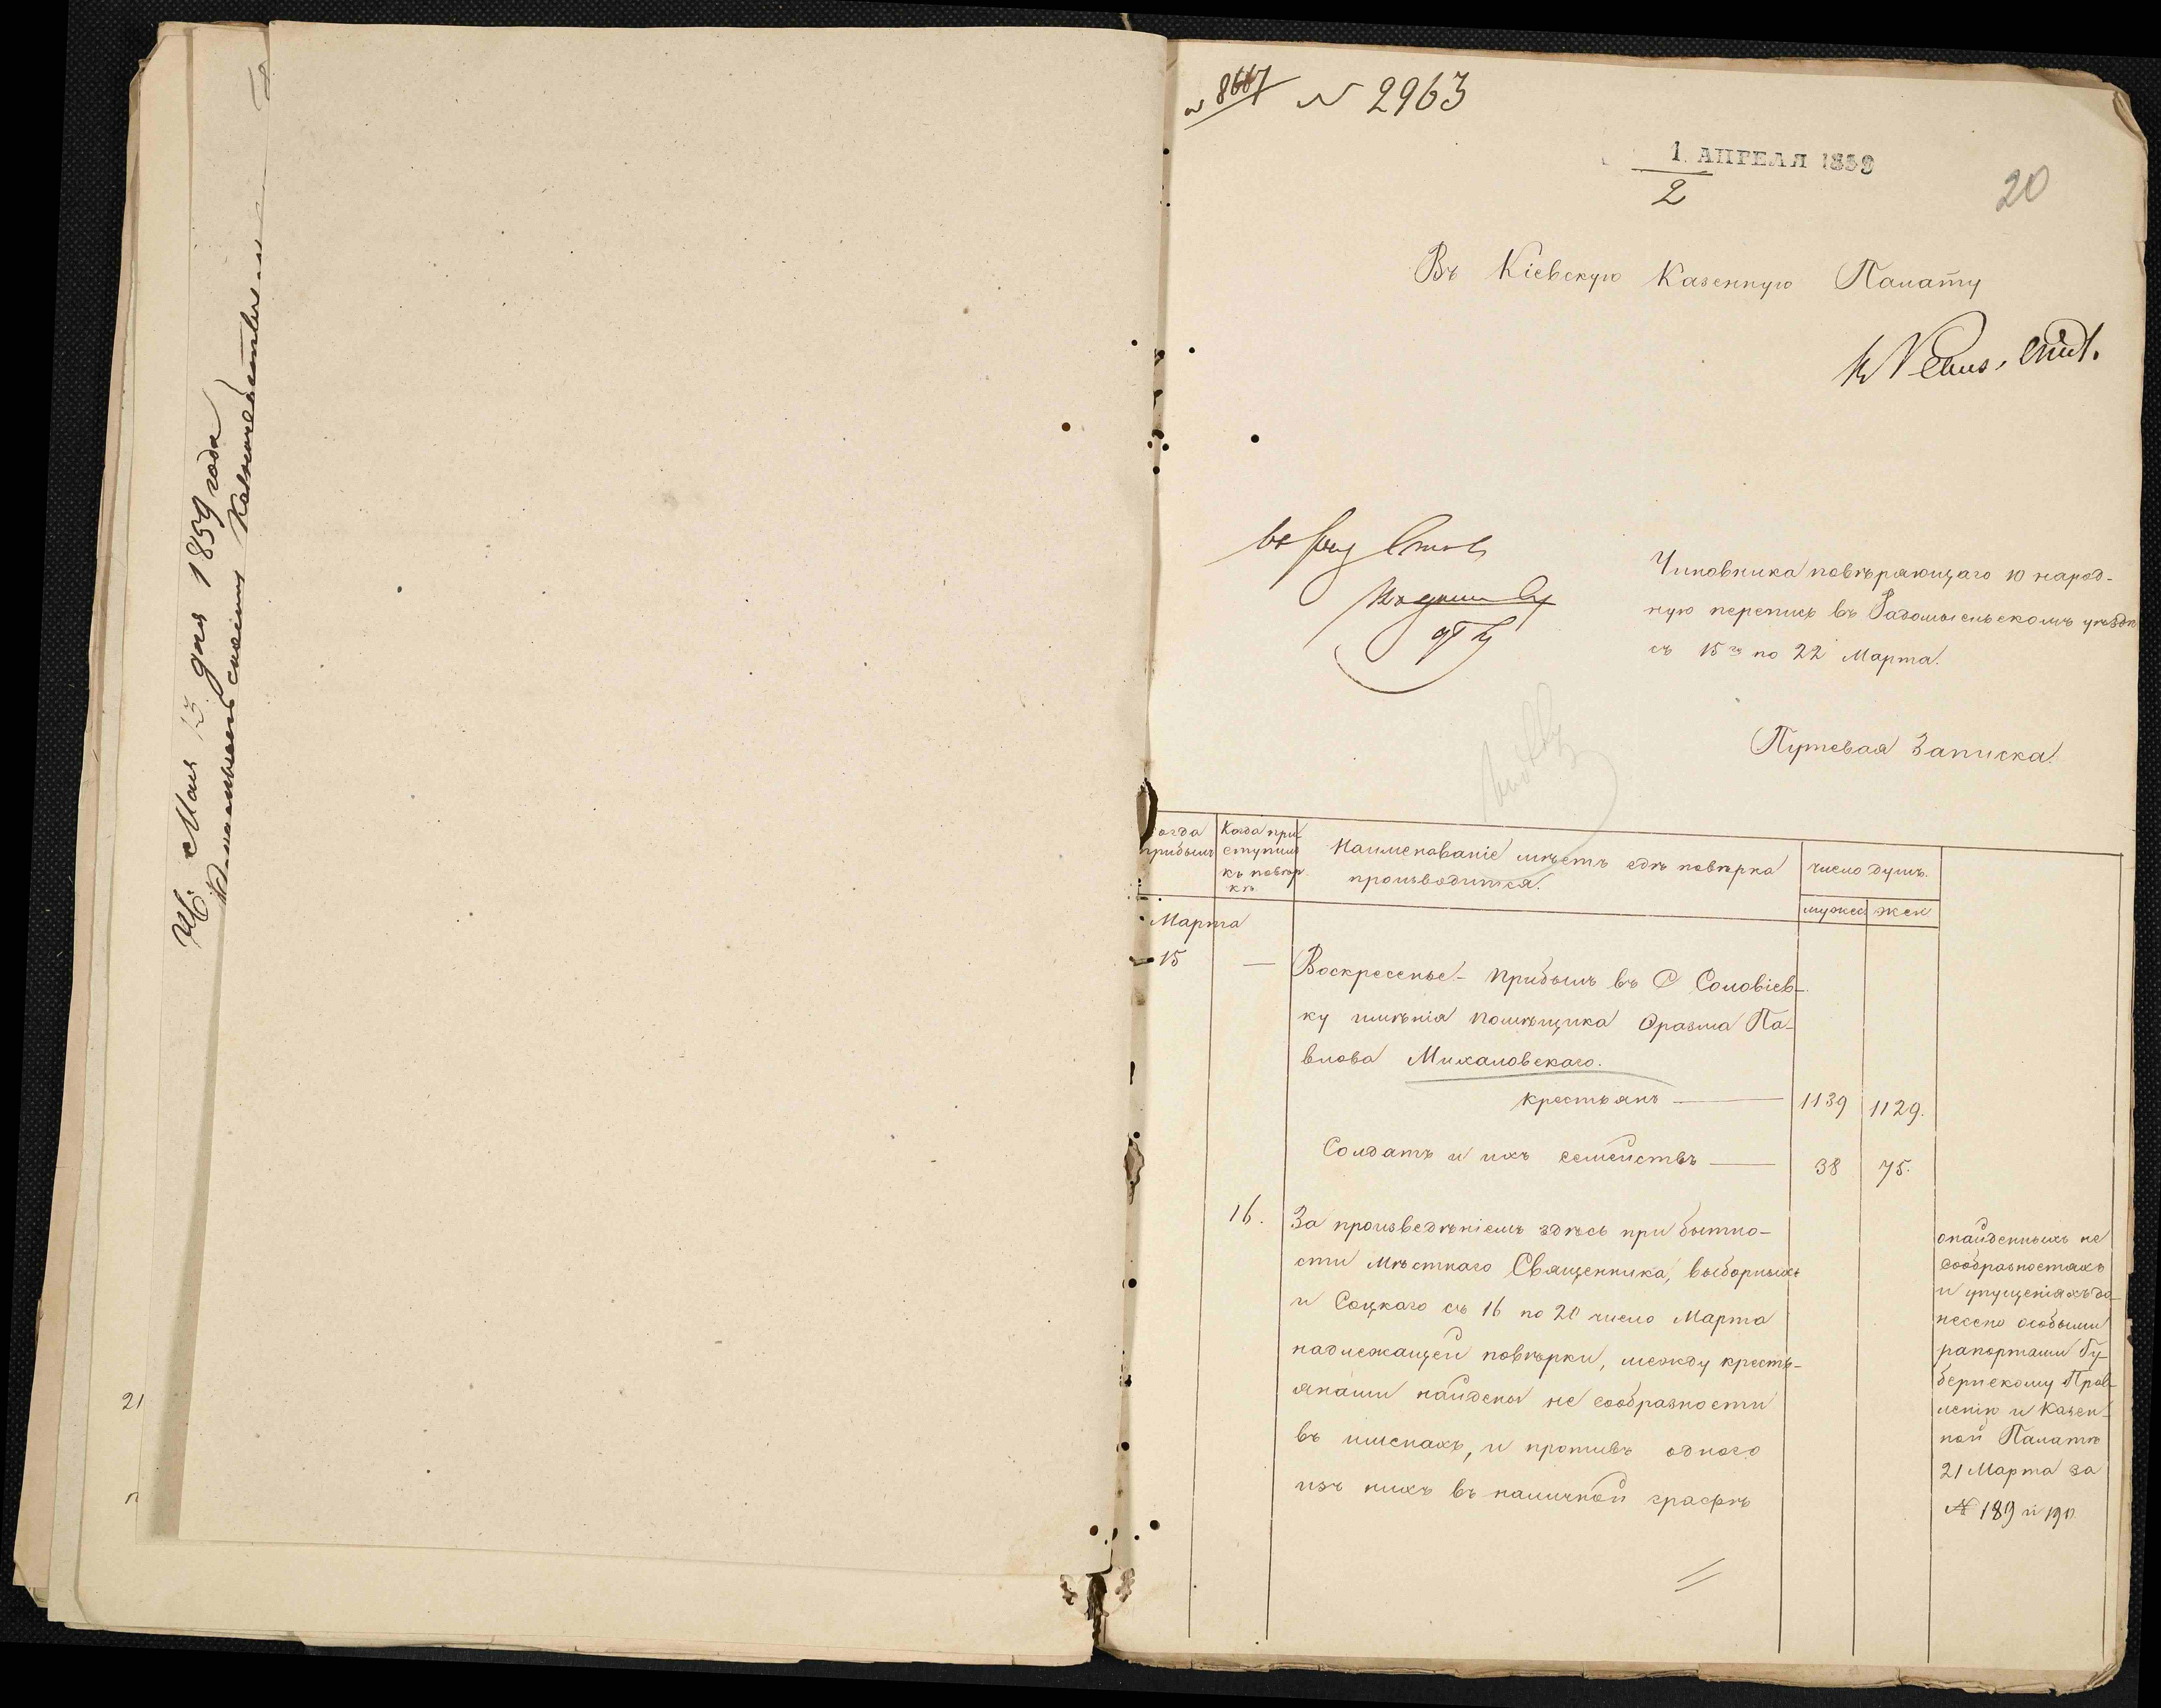 Мая 13 дня 1859 года
21
№ 8667 № 2963
1 АПРЕЛЯ 1859
2
20
Въ Кіевскую Казенную Палату
Чиновника повѣряющаго 10 народ-
ную перепись въ Радомысльскомъ уѣздѣ
съ 15го по 22 Марта.
Путевая Записка.
Когда прибылъ
Когда приступилъ къ повѣркѣ
Наименованіе мѣстъ гдѣ повѣрка
производится.
число душъ.
мужес жен
Марта
15 — Воскресенье - прибылъ въ С Соловіев-
ку имѣнія помѣщика Эразма Па-
влова Михаловскаго.
крестьянъ — 1139 1129.
Солдатъ и ихъ семействъ — 38 75.
16. За произведѣніемъ здѣсь при бытно-
сти мѣстнаго Священника, выборныхъ
и Соцкаго съ 16 по 20 число Марта
надлежащей повѣрки, между кресть-
янами найдены не сообразности
въ именахъ, и противъ одного
изъ нихъ въ наличной графѣ
онайденныхъ не
сообразностяхъ
и упущеніяхъ до-
несено особыми
рапортами Гу-
бернскому Прав-
ленію и Казен-
ной Палатѣ
21 Марта за
№ 189 и 190